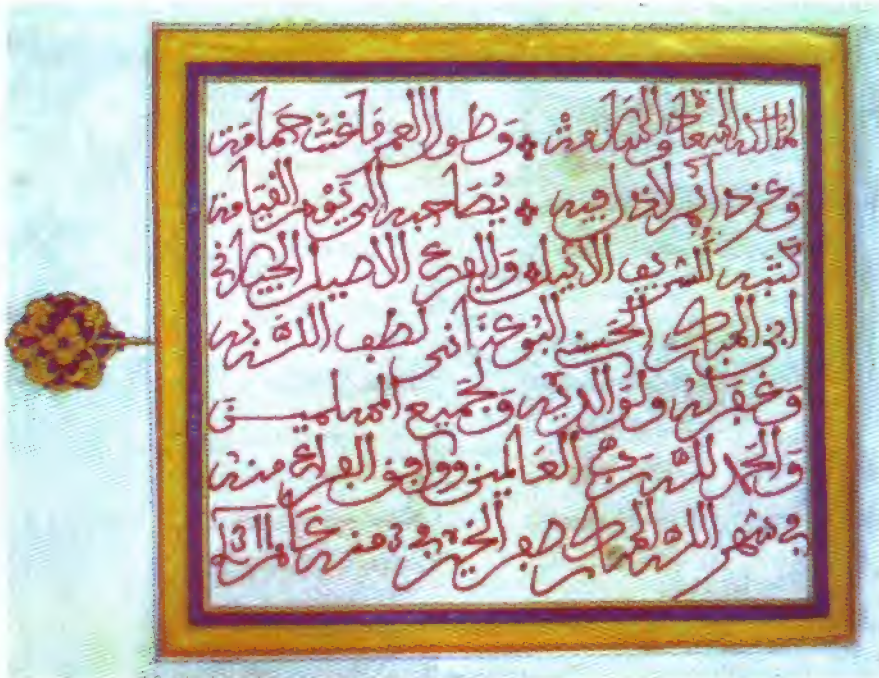 لمالكه السعادة والسلامة ❖ وطول العمر ما غنت حمامة
وعز دائم لا ذل فيه ❖ يصاحبه إلى يوم القيامة
كتبه الشريف الاثيل ❖ والفرع الاصيل الجيلاني
ابن المبارك الحسني البوعناني لطف الله به
وغفر له ولوالديه ولجميع المسلمين
والحمد لله رب العالمين ووافق الفراغ منه
في شهر الله المبارك صفر الخير في 3 منه عام